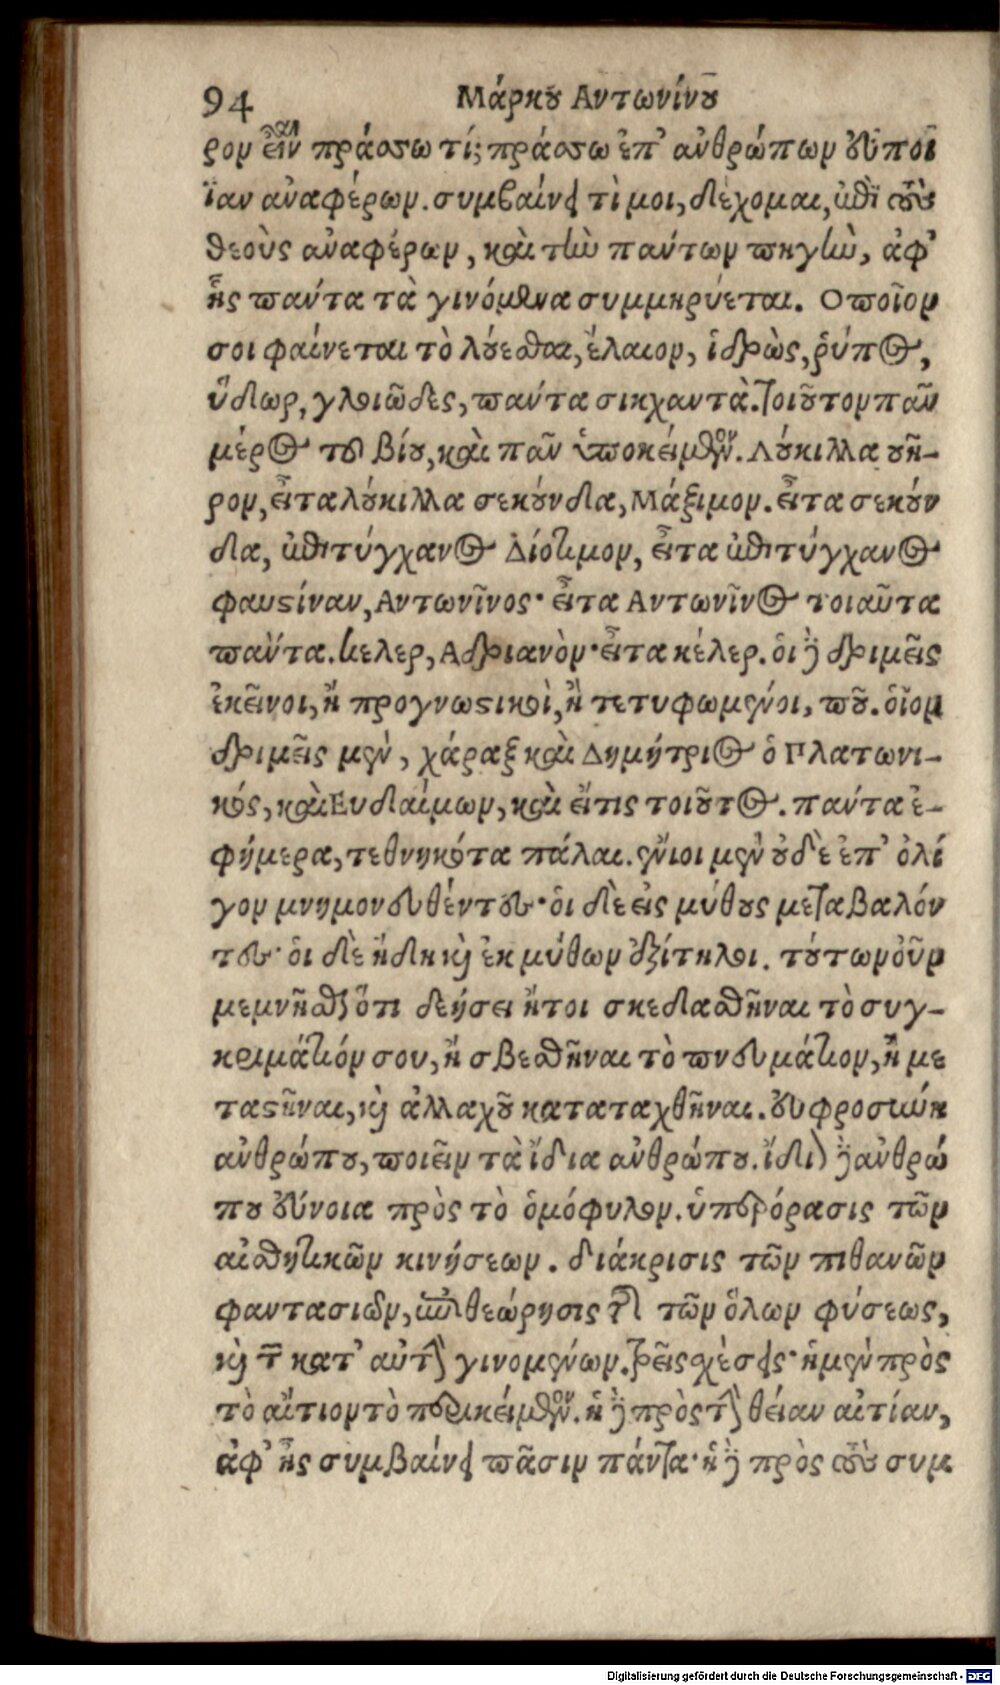 94 Μάρκου Αντωνίνου
ρον εἶναι πράσσω τί; πράσσω ἐπ' ἀνθρώπων εὐποιϊ
ΐαν ἀναφέρων. συμβαίνει τὶ μοι, δέχομαι, ἐπὶ τοὺς
θεοὺς ἀναφέρων, καὶ τὴν πάντων πηγὴν, ἀφ'
ἧς πάντα τὰ γινόμενα συμμηρύεται. Οποῖον
σοι φαίνεται τὸ λούεσθαι, ἔλαιον, ἱδρὼς, ῥύπος,
ὕδωρ, γλοιῶδες, πάντα σικχαντὰ. τοιοῦτον πᾶν
μέρος τοῦ βίου, καὶ πᾶν ὑποκείμενον. Λούκιλλα οὐῆ-
ρον, εἶτα λούκιλλα σεκούνδα, Μάξιμον. εἶτα σεκούν
δα, ἐπιτύγχανος Διότιμον, εἶτα ἐπιτύγχανος
φαυστίναν, Αντωνῖνος· εἶτα Αντωνῖνος τοιαῦτα
πάντα. κελερ, Αδριανὸν· εἶτα κέλερ. οἱ δὲ δριμεῖς
ἐκεῖνοι, ἢ προγνωστικοὶ, ἢ τετυφωμένοι, ποῦ. οἷον
δριμεῖς μὲν, χάραξ καὶ Δημήτριος ὁ Πλατωνι-
κός, καὶ Ευδαίμων, καὶ εἴτις τοιοῦτος. πάντα ἐ-
φήμερα, τεθνηκότα πάλαι. ἔνιοι μὲν οὐδὲ ἐπ' ὀλί
γον μνημονευθέντες· οἱ δὲ εἰς μύθους μεταβαλόν
τες· οἱ δὲ ἤδη καὶ ἐκ μύθων ἐξίτηλοι. τούτων οὖν
μεμνῆσθαι ὅτι δεήσει ἤτοι σκεδασθῆναι τὸ συγ-
κριμάτιόν σου, ἢ σβεσθῆναι τὸ πνευμάτιον, ἢ με
ταστῆναι, καὶ ἀλλαχοῦ καταταχθῆναι. εὐφροσύνη
ἀνθρώπου, ποιεῖν τὰ ἴδια ἀνθρώπου. ἴδιον δὲ ἀνθρώ
που εὔνοια πρὸς τὸ ὁμόφυλον. ὑπερόρασις τῶν
αἰσθητικῶν κινήσεων. διάκρισις τῶν πιθανῶν
φαντασιῶν, ἐπιθεώρησις τῆς τῶν ὅλων φύσεως,
καὶ τῶν κατ' αὐτὴν γινομένων. τρεῖς σχέσεις· ἡ μὲν πρὸς
τὸ αἴτιον τὸ περικείμενον. ἡ δὲ πρὸς τὴν θείαν αἰτίαν,
ἀφ' ἧς συμβαίνει πᾶσιν πάντα· ἡ δὲ πρὸς τοὺς συμ
Digitalisierung gefördert durch die Deutsche Forschungsgemeinschaft - DFG